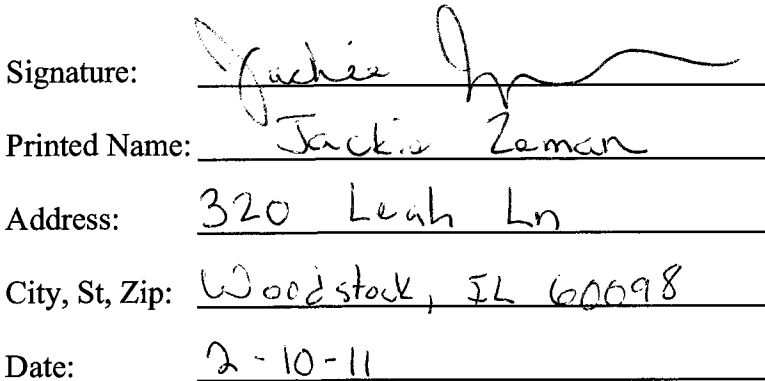 Signature: Jackie
Printed Name: Jackie Zeman
Address: 320 Leah Ln
City, St, Zip: Woodstock, IL 60098
Date: 2-10-11